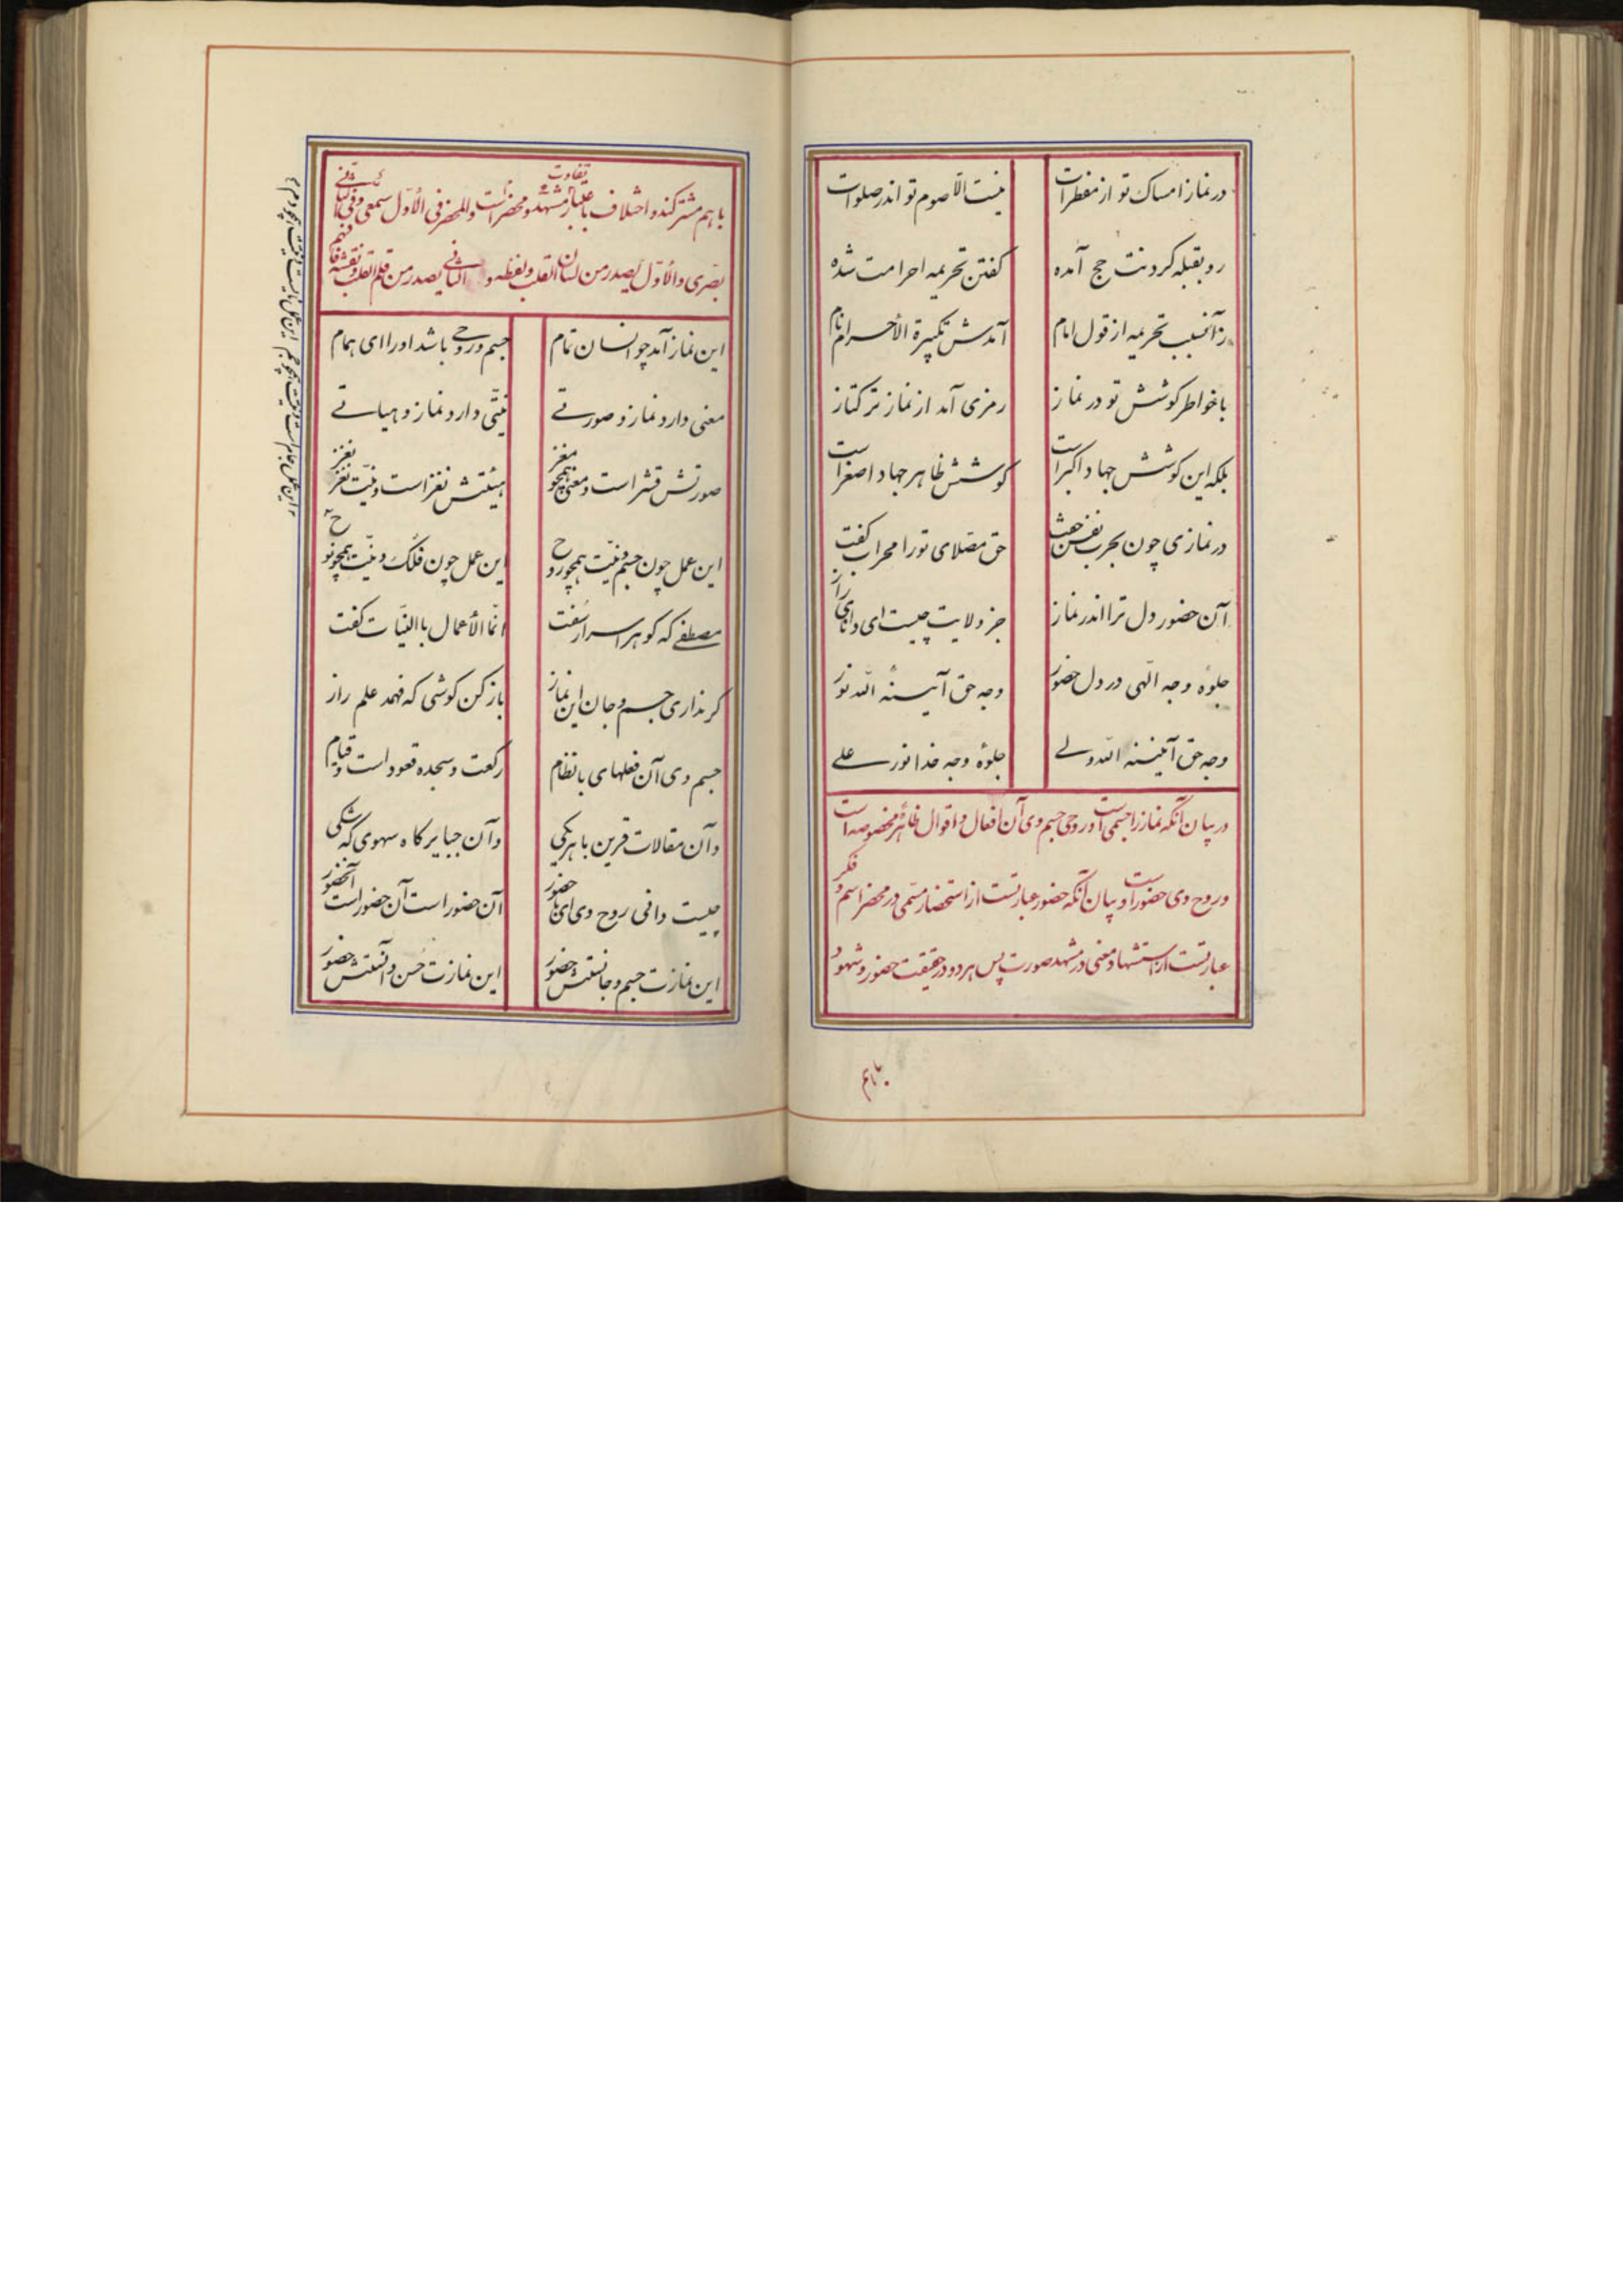 در نماز امساک تو از مفطرات
نیست الّا صوم تو اندر صلوات
رو بقبله کردنت حج آمده
کفتن تحریمه احرامت شده
زآنسبب تحریمه از قول امام
آمدش تکبیرة الأحرام نام
با خواطر کوشش تو در نماز
رمزی آمد از نماز ترکتاز
بلکه این کوشش جهاد اکبر است
کوشش ظاهر جهاد اصغر است
در نمازی چون بحرب نفس جفت
حق مصّلای تو را محراب کفت
آن حضور دل ترا اندر نماز
جز ولایت چیست ای دانای راز
جلوهٔ وجه الٓهی در دل حضور
وجه حق آیینه الله نور
وجه حق آیینه الله ولے
جلوهٔ وجه خدا نور علے
در بیان آنکه نماز را جسمی است و روحی جسم وی آن افعال و اقوال ظاهره مخصوصه است
و روح وی حضور است و بیان آنکه حضور عبارتست از استحضار مسّمی در محضر اسم و فکر
عبارتست از استشهاد معنی در مشهد صورت پس هر دو در حقیقت حضور و شهود
باهم
باهم مشترکند و اختلاف باعتبار تفاوت مشهد و محضر است والمحضر فی الأوّل سمعی و فی الثانی
بصری والأوّل یصدر من لسان القلب و لفظه و الثانی یصدر من قلم القلب و نقشه فافهم
این نماز آمد چو انسان تمام
جسم و روحے باشد او را ای همام
معنی دارد نماز و صورتے
نیّتی دارد نماز و هیاتے
صورتش قشر است و معنی همچو مغز
هیئتش نغز است و نیّت نغز نغز
این عمل چون جسم و نیّت همچو روح
این عمل چون فلک و نیّت همچو نوح
مصطفے که کوهر اسرار سفت
انّما الأعمال بالنیّات کفت
کر نداری جسم و جان این نماز
باز کن کوشی که فهمد علم راز
جسم وی آن فعلهای با نظام
رکعت و سجده قعود است و قیام
و آن مقالات قرین با هر یکی
و آن جبایر کاه سهوی که شکی
چیست دانی روح وی ای با حضور
آن حضور است آن حضور است آنحضور
این نمازت جسم و جانستش حضور
این نمازت حُسن و آنستش حضور